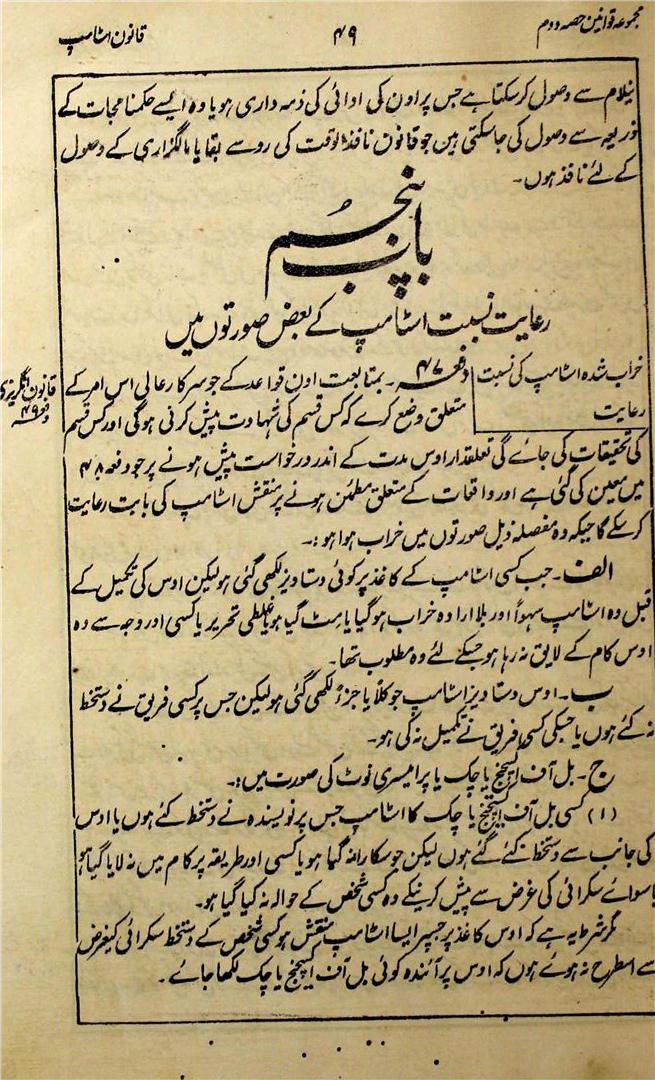 مجموعہ قوانین حصہ دوم
۴۹
قانون اسٹامپ
نیلام سے وصول کرسکتا ہے جس پر اون کی ادائی کی ذمہ داری ہو یا وہ ایسے حکمنامجات کے
ذریعہ سے وصول کی جاسکتی ہین جو قانون نافذالوقت کی روسے بقایا مالگزاری کے وصول
کے لئے نافذ ہوں۔
باب پنجم
رعایت نسبت اسٹامپ کے بعض صورتوں میں
خراب شدہ اسٹامپ کی نسبت رعایت
دفعہ ۴۷۔ بمتابعت اون قواعد کے جو سرکار عالی اس امر کے
قانون انگریزی دفعہ ۴۹
متعلق وضع کرے کہ کس قسم کی شہادت پیش کرنی ہوگی اور کس قسم
کی تحقیقات کی جائے گی تعلقدار اوس مدت کے اندر درخواست پیش ہونے پر جو دفعہ ۴۸
میں معین کی گئی ہے اور واقعات کے متعلق مطمئن ہونے پر منقش اسٹامپ کی بابت رعایت
کرسکے گا جبکہ وہ مفصلہ ذیل صورتوں میں خراب ہوا ہو:۔
الف۔ جب کسی اسٹامپ کے کاغذ پر کوئی دستاویز لکھی گئی ہو لیکن اوس کی تکمیل کے
قبل وہ اسٹامپ سہواً اور بلا ارادہ خراب ہوگیا یا مٹ گیا ہو یا غلطی تحریر یا کسی اور وجہ سے وہ
اوس کام کے لایق نہ رہا ہو جسکے لئے وہ مطلوب تھا۔
ب۔ اوس دستاویز اسٹامپ جو کلاً یا جزءً لکھی گئی ہو لیکن جس پر کسی فریق نے دستخط
نہ کئے ہوں یا جسکی کسی فریق نے تکمیل نہ کی ہو۔
ج۔ بل آف اکسچنج یا چک یا پرامیسری نوٹ کی صورت میں:۔
(۱) کسی بل آف اکسچنج یا چک کا اسٹامپ جس پر نویسندہ نے دستخط کئے ہوں یا اوس
کی جانب سے دستخط کئے گئے ہوں لیکن جو سکارا نہ گیا ہو یا کسی اور طریقہ پر کام میں نہ لایا گیا ہو
یا سوائے سکرائی کی غرض سے پیش کرنیکے وہ کسی شخص کے حوالہ نہ کیا گیا ہو۔
مگر شرط یہ ہے کہ اوس کاغذ پر جسپر ایسا اسٹامپ منقش ہو کسی شخص کے دستخط سکرائی کیغرض
سے اسطرح نہ ہوئے ہوں کہ اوس پر آئندہ کوئی بل آف اکسچنج یا چک لکھا جائے۔